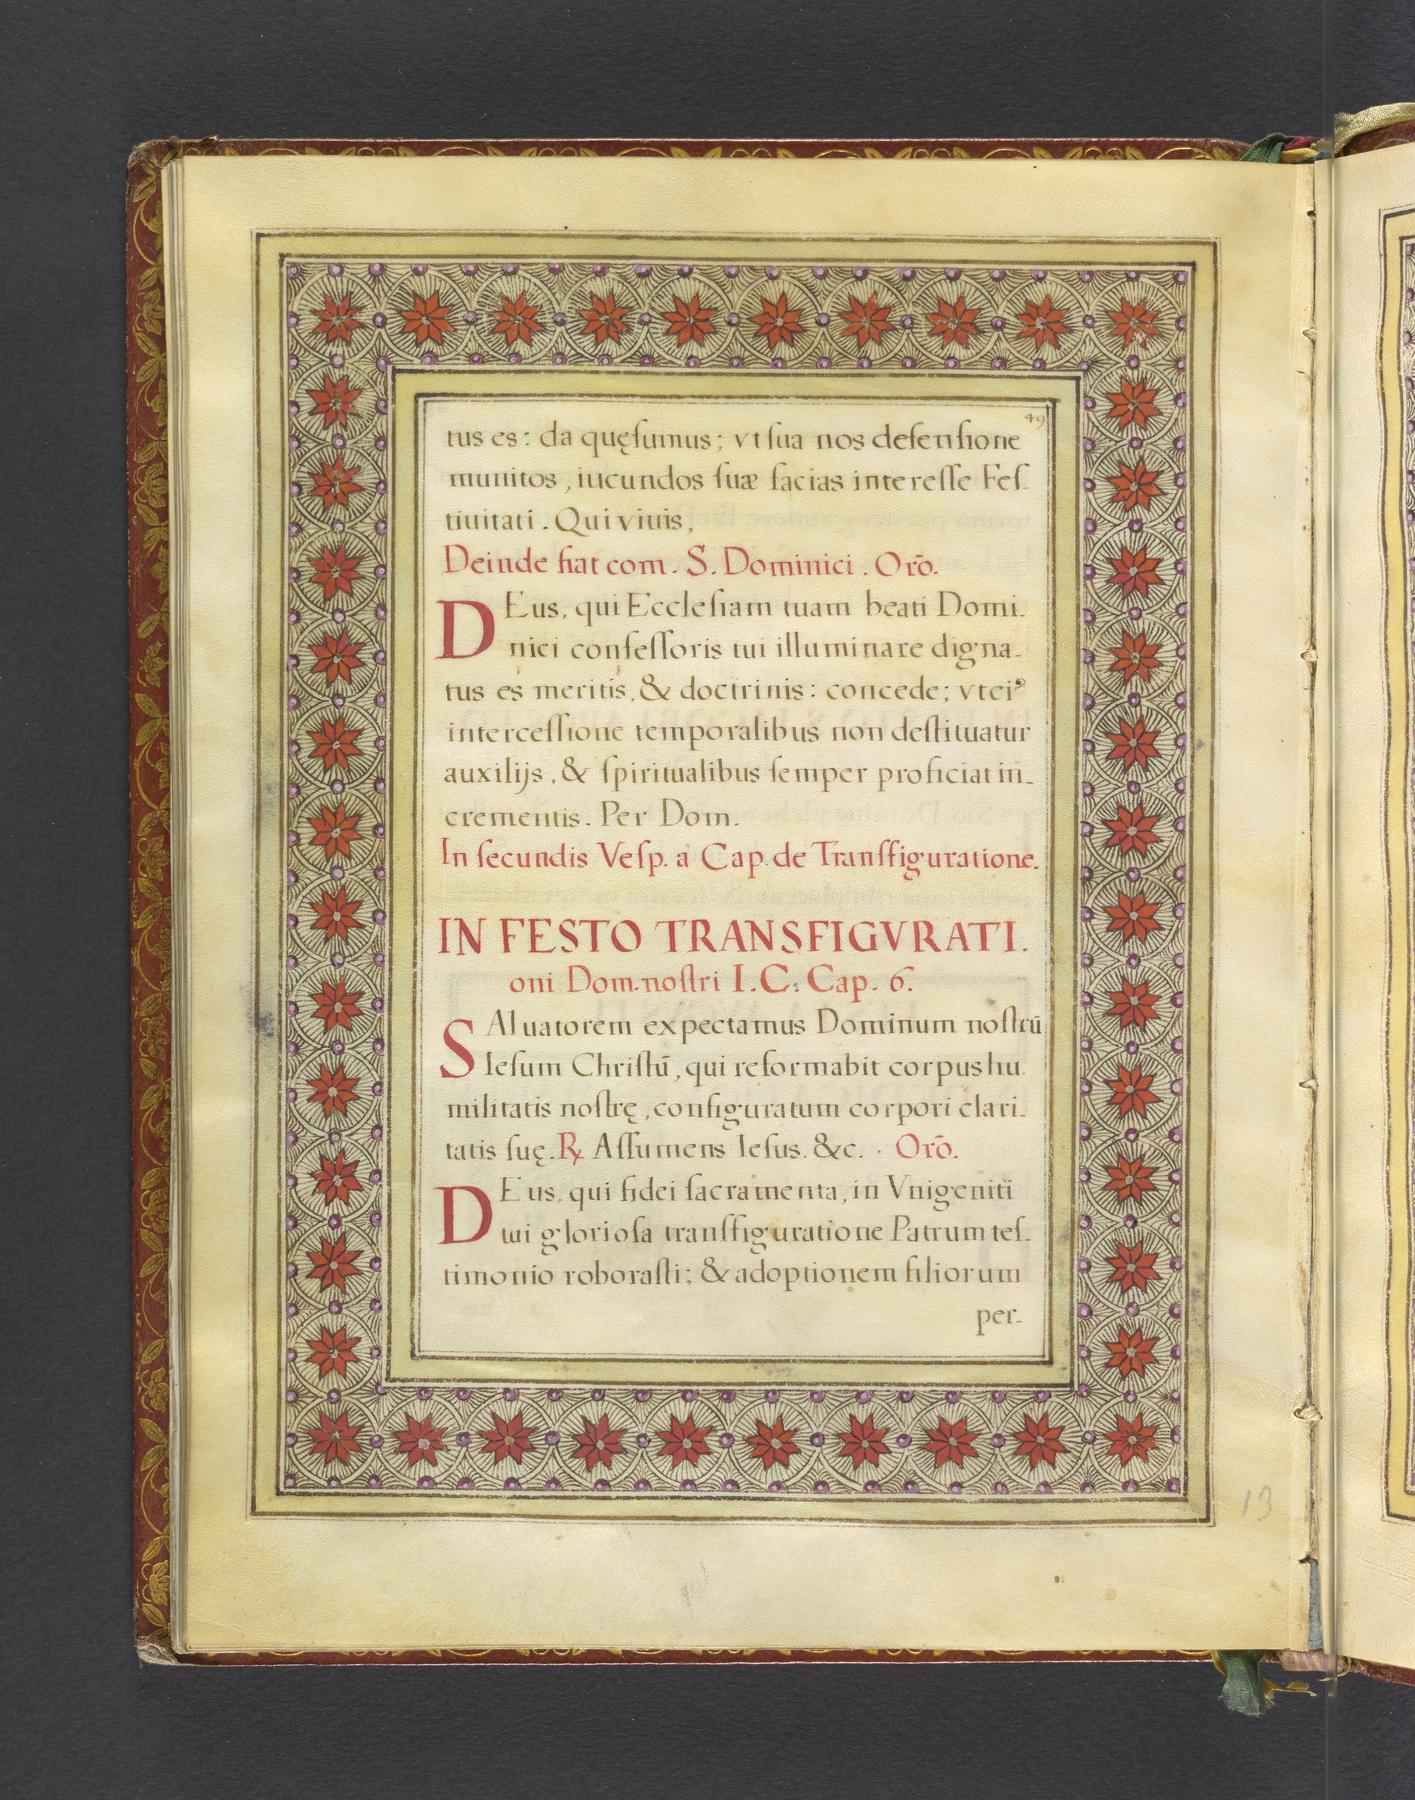 49
tus es: da quęſumus; vt ſua nos defenſione
munitos, iucundos ſuæ facias intereſſe Feſ-
tiuitati. Qui viuis,
Deinde fiat com. S. Dominici. Orõ.
DEus, qui Eccleſiam tuam beati Domi-
nici confeſſoris tui illuminare digna-
tus es meritis, & doctrinis: concede; vt ei⁹
interceſſione temporalibus non deſtituatur
auxilijs, & ſpiritualibus ſemper proficiat in-
crementis. Per Dom.
In ſecundis Veſp. a Cap. de Tranſfiguratione.
IN FESTO TRANSFIGVRATI.
oni Dom. noſtri I. C: Cap. 6.
SAluatorem expectamus Dominum noſtrũ
Ieſum Chriſtũ, qui reformabit corpus hu-
militatis noſtrę, configuratum corpori clari-
tatis ſuę. ℞ Aſſumens Ieſus. &c. · Orõ.
DEus, qui fidei ſacramenta, in Vnigeniti
tui glorioſa tranſfiguratione Patrum teſ-
timonio roboraſti; & adoptionem filiorum
per-
13